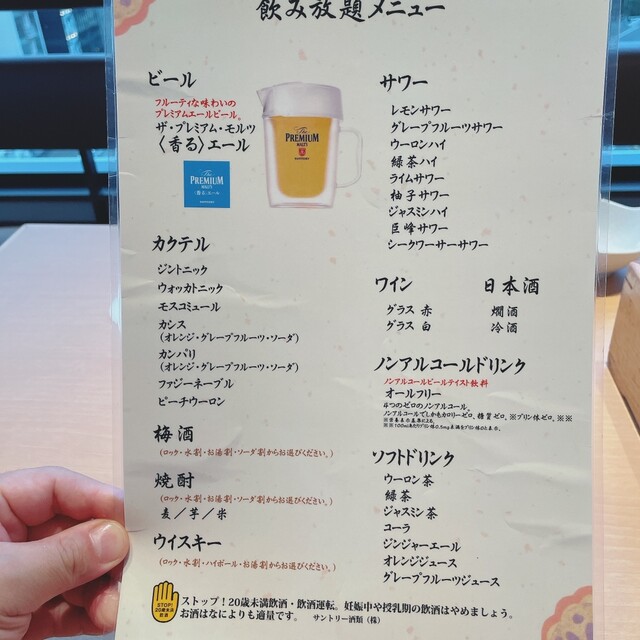 飲み放題メニュー
ビール
フルーティな味わいの
プレミアムエールビール。
ザ・プレミアム・モルツ
〈香る〉エール
The
PREMIUM
MALT'S
SUNTORY
The
PREMIUM
MALT'S
〈香る〉エール
SUNTORY
カクテル
ジントニック
ウォッカトニック
モスコミュール
カシス
(オレンジ・グレープフルーツ・ソーダ)
カンパリ
(オレンジ・グレープフルーツ・ソーダ)
ファジーネーブル
ピーチウーロン
梅酒
(ロック・水割・お湯割・ソーダ割からお選びください。)
焼酎
(ロック・水割・お湯割・ソーダ割からお選びください。)
麦／芋／米
ウイスキー
(ロック・水割・ハイボール・お湯割からお選びください。)
サワー
レモンサワー
グレープフルーツサワー
ウーロンハイ
緑茶ハイ
ライムサワー
柚子サワー
ジャスミンハイ
巨峰サワー
シークワーサーサワー
ワイン
グラス 赤
グラス 白
日本酒
燗酒
冷酒
ノンアルコールドリンク
ノンアルコールビールテイスト飲料
オールフリー
4つのゼロのノンアルコール。
ノンアルコールでしかもカロリーゼロ、糖質ゼロ、※プリン体ゼロ、※※
ソフトドリンク
ウーロン茶
緑茶
ジャスミン茶
コーラ
ジンジャーエール
オレンジジュース
グレープフルーツジュース
STOP!
20歳未満
飲酒
ストップ！20歳未満飲酒・飲酒運転。妊娠中や授乳期の飲酒はやめましょう。
お酒はなによりも適量です。 サントリー酒類（株）